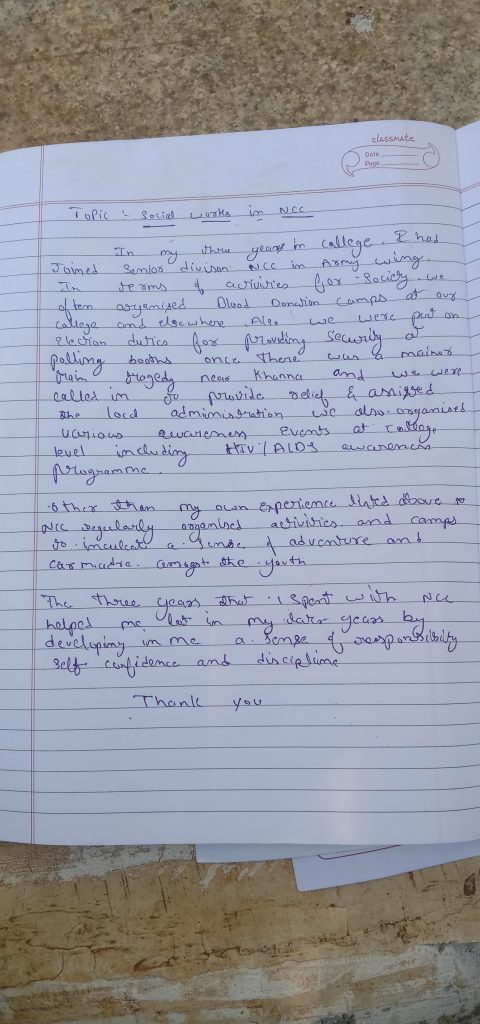 classmate
Date
Page
Topic :- Social works in NCC
In my three years in college. I had
Joined Senior divison NCC in Army wing.
In terms of activities for Society, we
often organised Blood Donation camps at our
college and elsewhere. Also we were put on
Election duties for providing security at
polling booths once there was a mainor
train tragedy near Khanna and we were
called in to provide relief & assised
the local administration we also organised
various awareness events at college
level including HIV/AIDS awareness
programme.
Other than my own experience listed above
NCC regularly organised activities and camps
to inculcat a sense of adventure and
carmiadre. amongst the youth
The three years that I spent with NCC
helped me lot in my later years by
developing in me a sense of responsibility
self confidence and discipline
Thank you